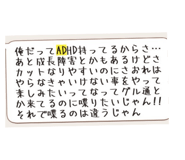 俺だって ADHD持ってるからさ…
あと成長障害とかもあるけどさ
カットなりやすいのにさおれは
やらなきゃいけない事をやって
楽しみたいってなってグル通と
か来てるのに喋りたいじゃん!!
それで喋るのは違うじゃん